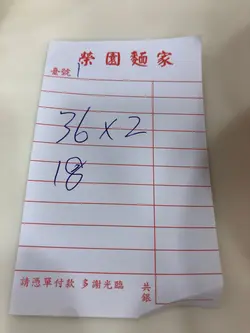 榮園麵家
臺號 1
36×2
18
請憑單付款 多謝光臨 共銀